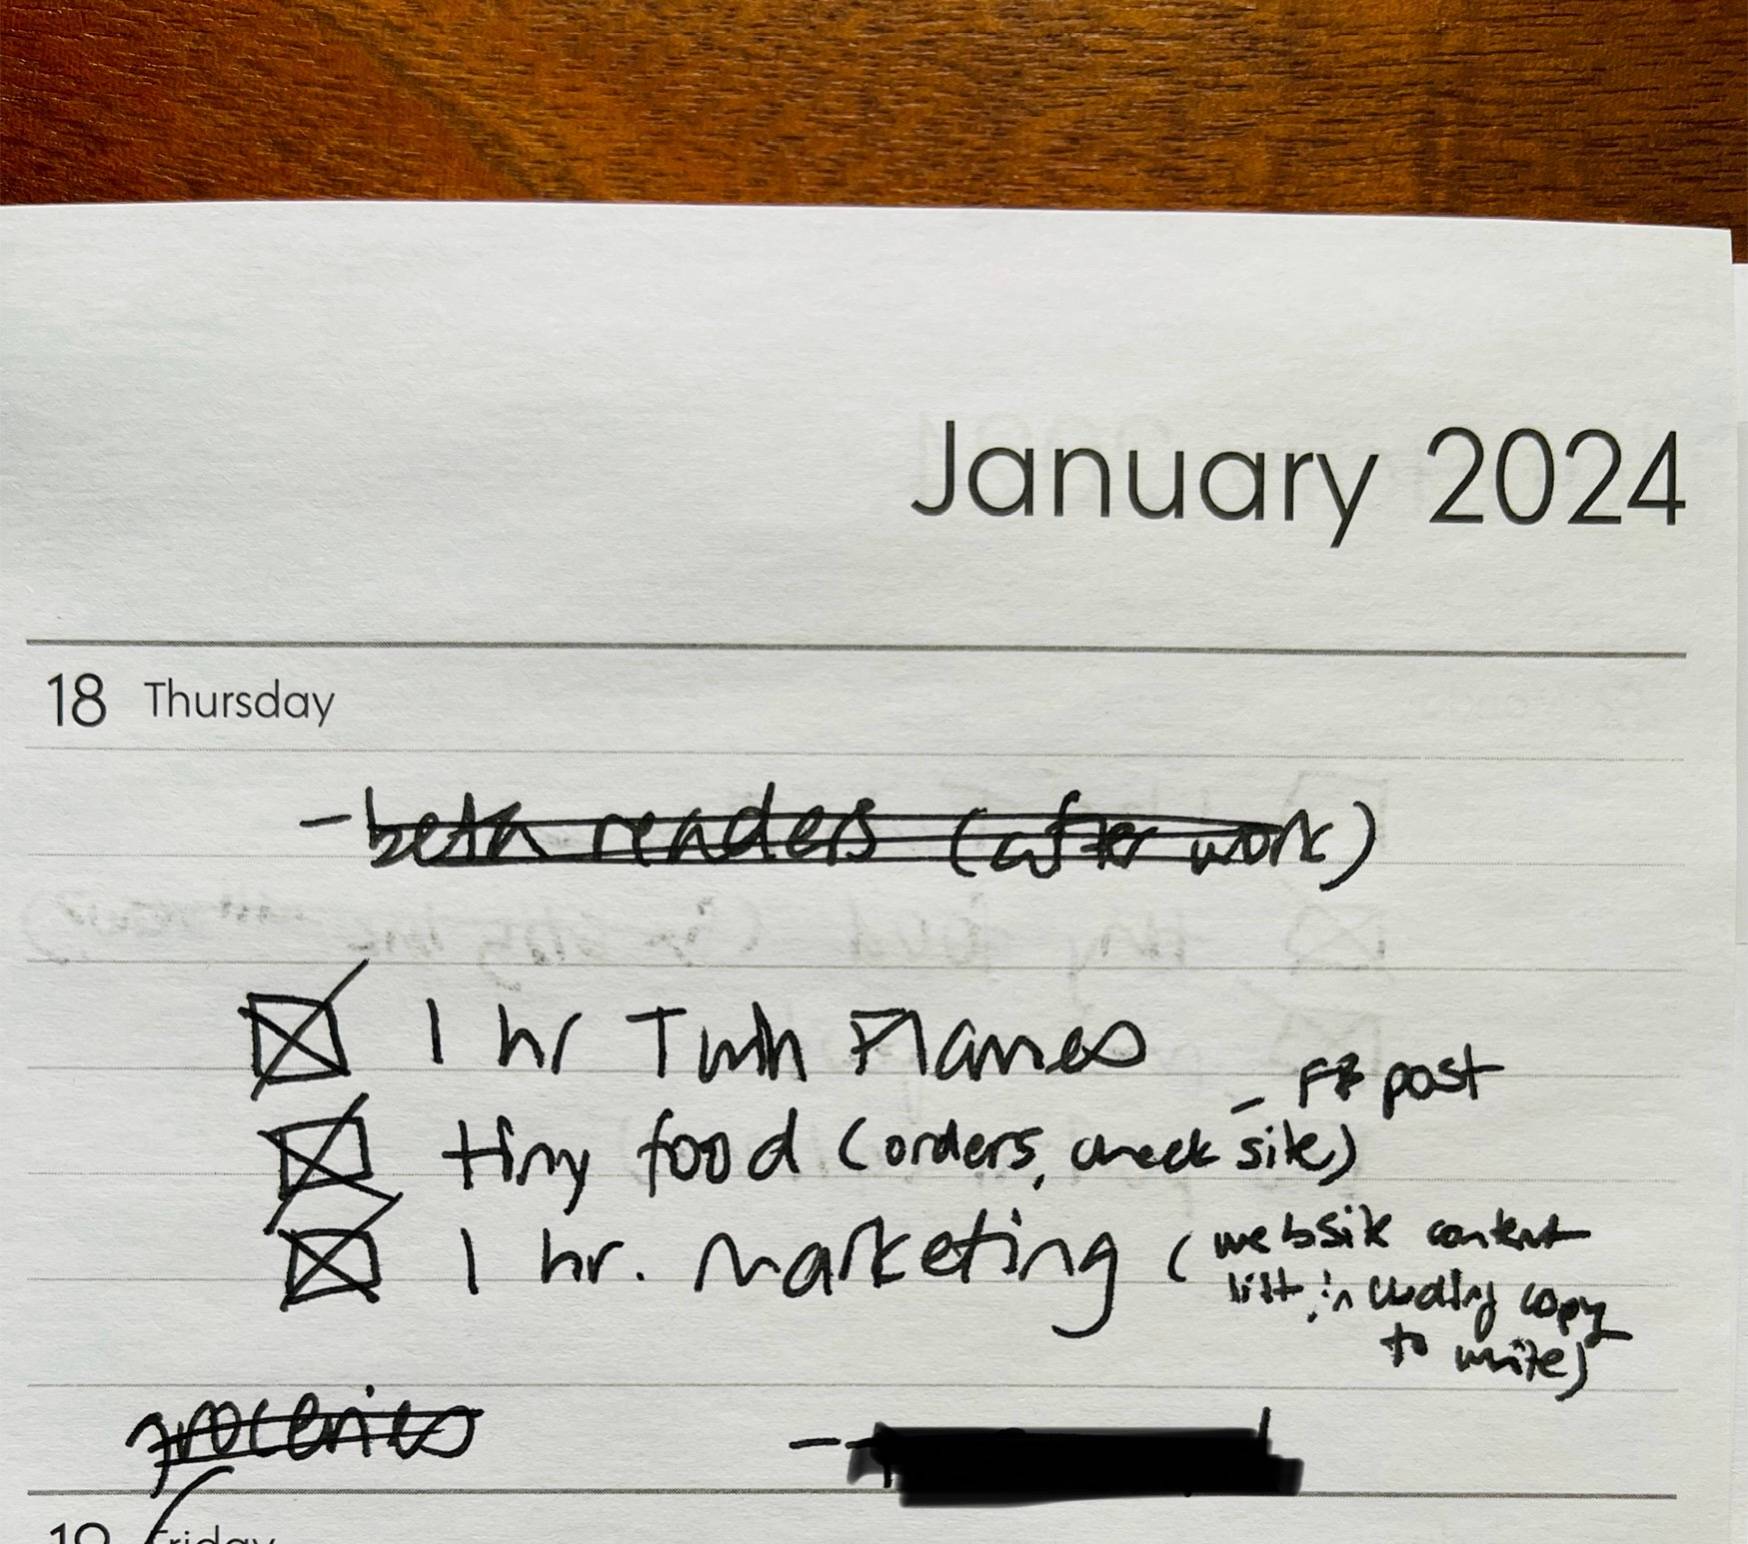 January 2024
18 Thursday
- beta readers (after work)
1 hr Twin Flames
- FB post
tiny food (orders, check site)
1 hr. marketing (website content
list, including copy
to write)
groceries
19 Friday